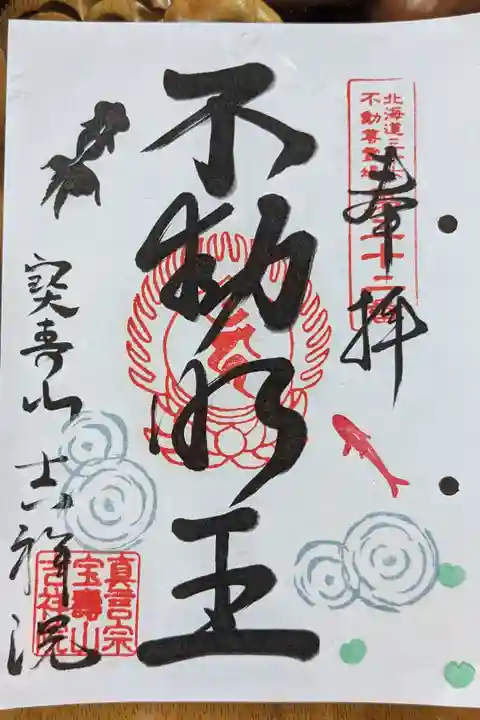 奉拝
北海道三十六
不動尊霊場
不動明王
寳寿山 吉祥院
真言宗
宝壽山
吉祥院